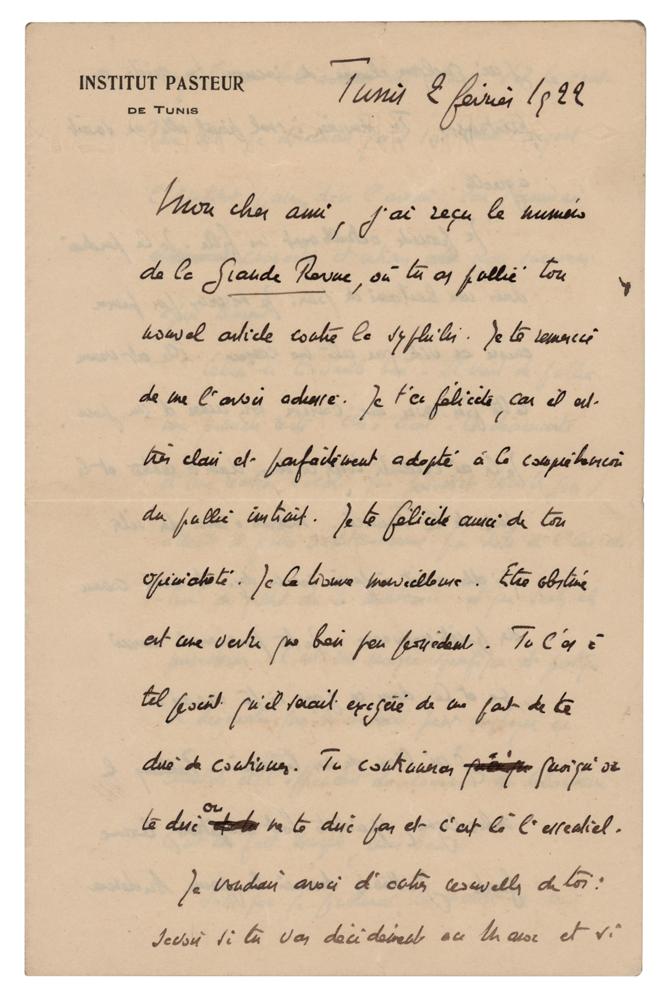 INSTITUT PASTEUR
DE TUNIS
Tunis 2 février 1922
Mon cher ami, j'ai reçu le numéro
de la Grande Revue, où tu as publié ton
nouvel article contre la syphilis. Je te remercie
de me l'avoir adressé. Je t'en félicite, car il est
très clair et parfaitement adapté à la compréhension
du public instruit. Je te félicite aussi de ton
opiniâtreté. Je la trouve merveilleuse. Etre obstiné
est une vertu que bien peu possèdent. Tu l'as à
tel point qu'il serait exagéré de ma part de te
dire de continuer. Tu continueras quoiqu'on
te dise ou ne te dise pas et c'est là l'essentiel.
Je voudrais avoir d'autres nouvelles de toi :
savoir si tu vas décidément au Maroc et si